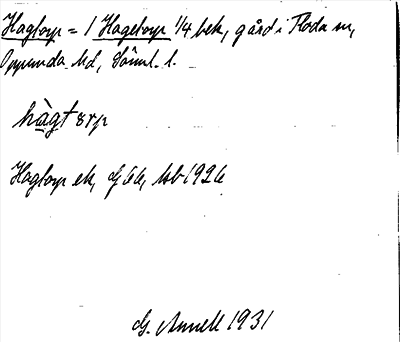 Hagtorp = 1 Hagetorp 1/4 bek, gård i Floda sn,
Oppunda hd, Söml. l.
hàgtørp
Hagtorp ek, Gbl, 1926
G. Annell 1931